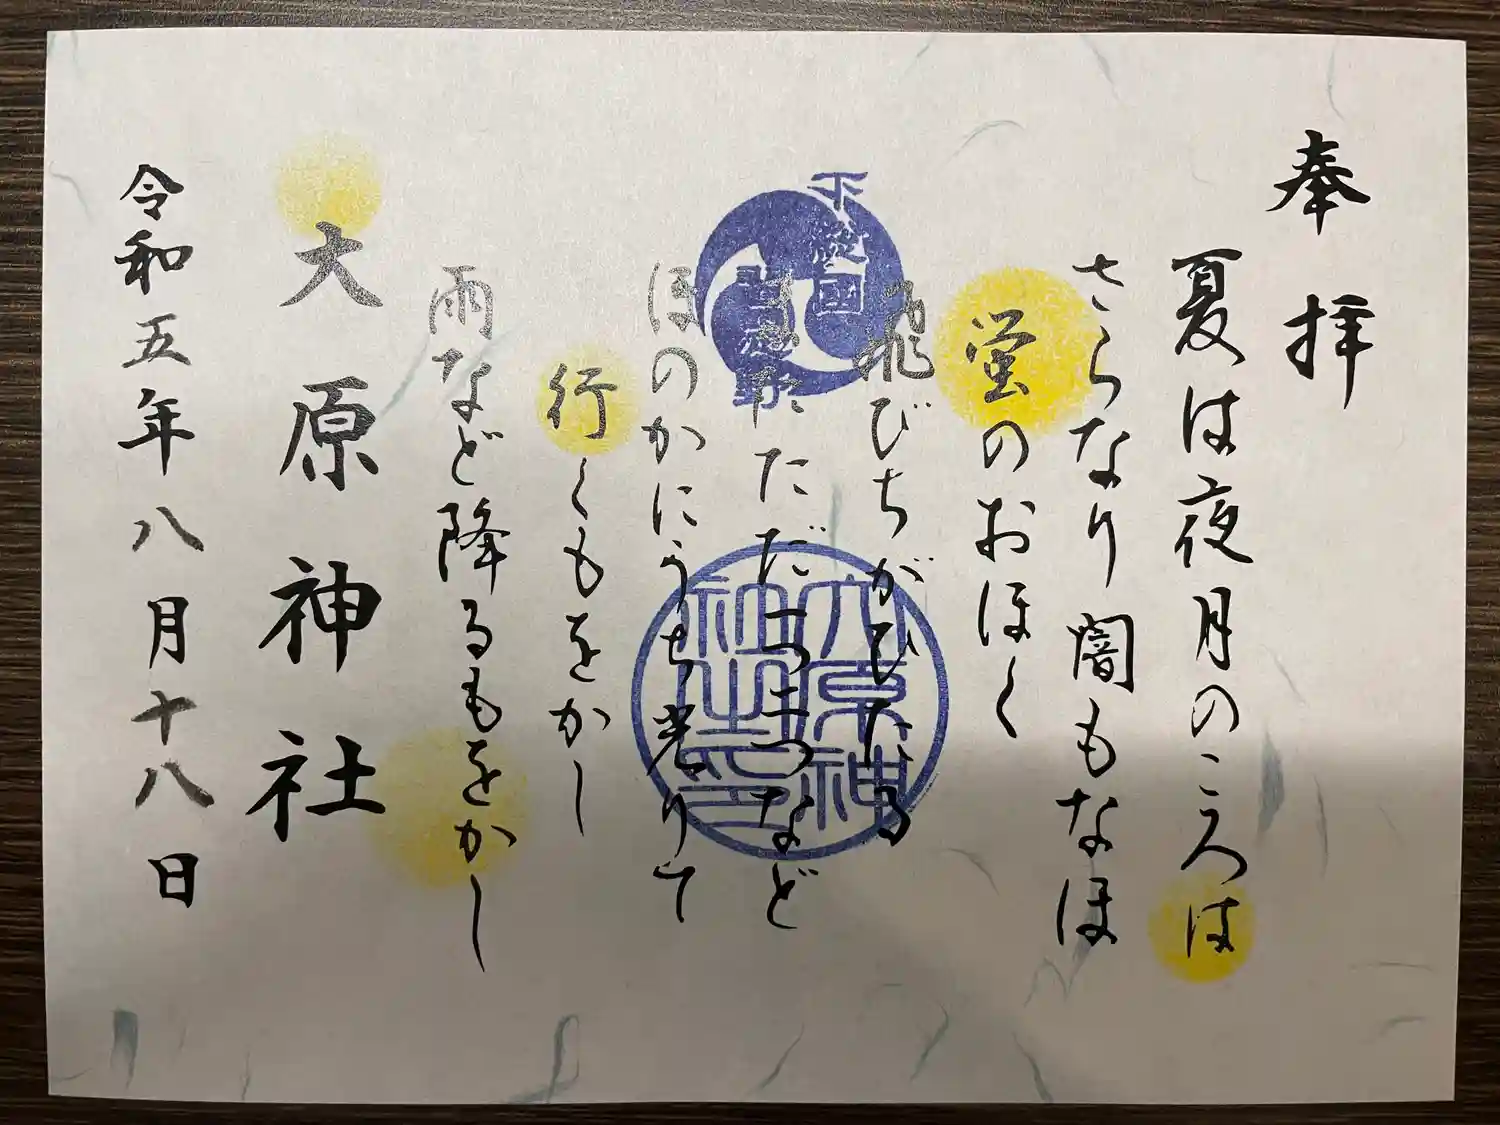 奉拝
夏は夜月のころは
さらなり闇もなほ
蛍のおほく
飛びちがひたる
まただ一つ二つなど
ほのかにうち光りて
行くもをかし
雨など降るもをかし
大原神社
令和五年八月十八日
下総国
大原神社之印